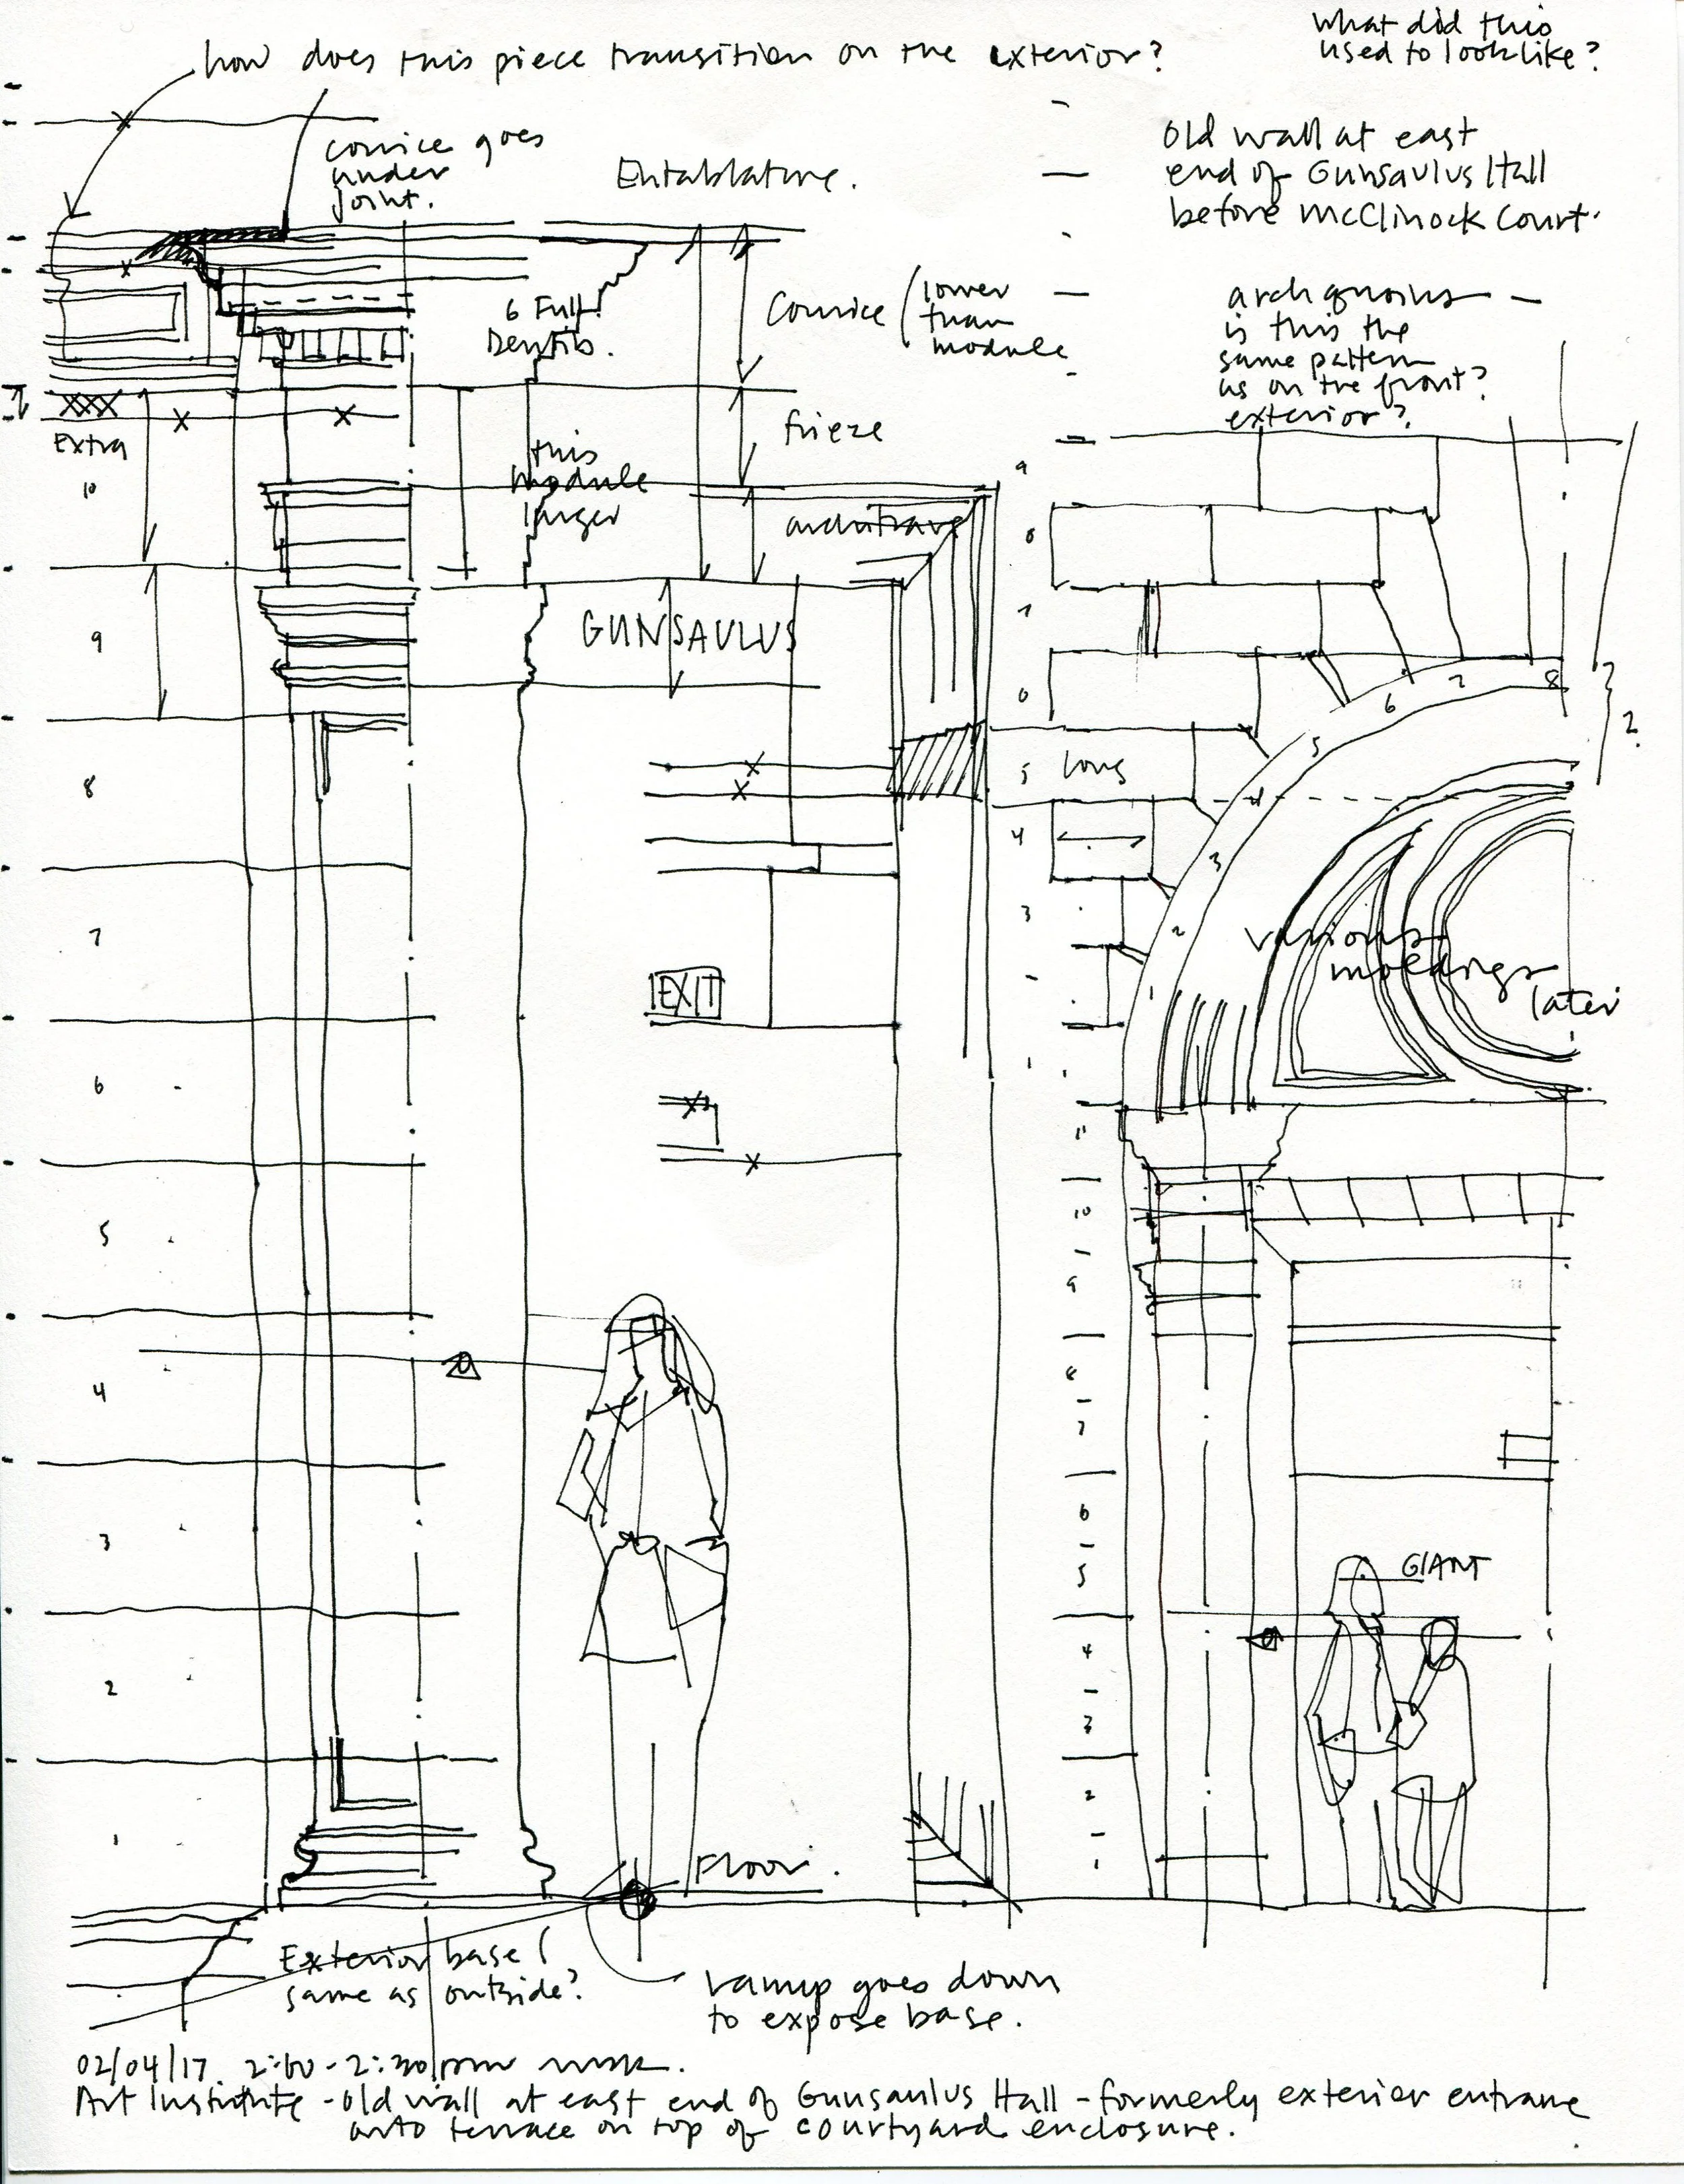 how does this piece transition on the exterior?
what did this
used to look like?
cornice goes
under
joint.
Entablature.
Old wall at east
end of Gunsaulus Hall
before McClinock Court.
6 Full
Dentils.
Cornice
lower
than
module
arch quoins
is this the
same pattern
as on the front?
exterior?
XXX
Extra
frieze
this
module
larger
architrave
10
9
8
7
6
5
4
3
2
1
GUNSAULUS
EXIT
9
8
7
6
5
4
3
1
long
1
2
3
4
5
6
7
8
2.
various
moldings
later
11
10
9
8
7
6
5
4
3
2
1
GIANT
Floor.
Exterior base
same as outside?
ramp goes down
to expose base.
02/04/17. 2:00-2:30pm
Art Institute - Old wall at east end of Gunsaulus Hall - formerly exterior entrance
onto terrace on top of courtyard enclosure.